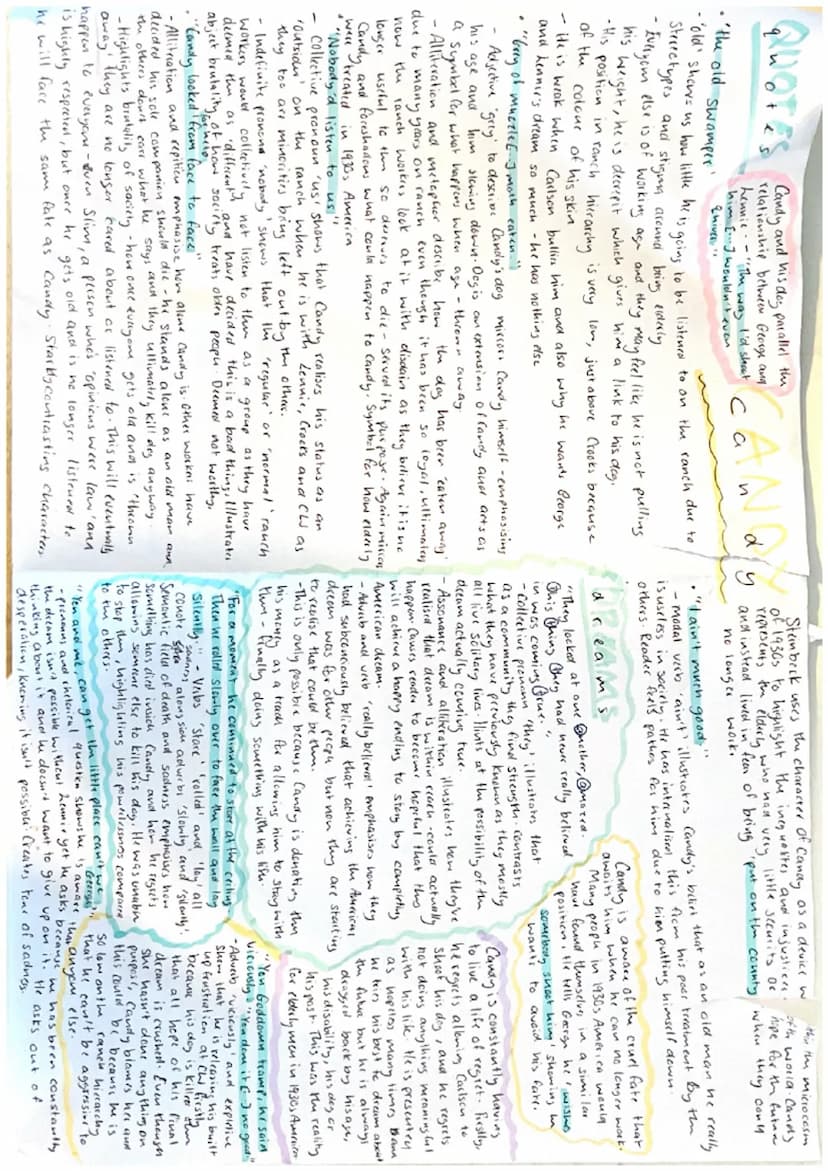 QUOTES
quotes
CANDY
Candy
Candy and his dog parallel the
relationship between George and
Lennie - "The way I'd shoot
him [...] wouldn't even
quiver."
• "the old swamper"
- 'old' shows us how little he is going to be listened to on the ranch due to
stereotypes and stigma around being elderly
- Everyone else is of working age and they may feel like he is not pulling
his weight, he is decrepit which gives him a link to his dog.
- His position in ranch hierarchy is very low, just above Crooks because
of the colour of his skin
- He is weak when Carlson bullies him and also why he wants George
and Lennie's dream so much - he has nothing else
• "Grey of muzzle [...] moth eaten"
- Adjective 'grey' to describe Candy's dog mirrors Candy himself - emphasising
his age and him slowing down. Dog is an extension of Candy and acts as
a symbol for what happens when age - thrown away.
- Alliteration and metaphor describe how the dog has been 'eaten away'
due to many years on ranch even though it has been so loyal, ultimately
now the ranch workers look at it with disdain as they believe it is no
longer useful to them so deserves to die - served its purpose. Again mirrors
Candy and foreshadows what could happen to Candy. Symbol for how elderly
were treated in 1930s America
• "Nobody'd listen to us"
- Collective pronoun 'us' shows that Candy realises his status as an
'outsider' on the ranch when he is with Lennie, Crooks and CW as
they too are minorities being left out by the others.
- Indefinite pronoun 'nobody' shows that the 'regular' or 'normal' ranch
workers would collectively not listen to them as a group as they have
deemed them as 'different' and have decided this is a bad thing. Illustrates
abject brutality of how society treats older people. Deemed not worthy.
• "Candy looked from face to face"
- Alliteration and repition emphasise how alone Candy is. Other workers have
decided his sole companion should die - he stands alone as an old man and
the others don't care what he says and they ultimately kill dog anyway.
- Highlights brutality of society - how once everyone gets old and is 'thrown
away' they are no longer cared about or listened to. This will eventually
happen to everyone - even Slim, a person who's 'opinions were law' and
is highly respected, but once he gets old and is no longer listened to
he will face the same fate as Candy. Starkly contrasting characters
Steinbeck uses the character of Candy as a device
the microcosm
of 1930s to highlight the inequalities and injustices
world. Candy
represents the elderly who had very little security or hope for the future
and instead lived in fear of being 'put on the county' when they could
no longer work.
• "I ain't much good"
- Modal verb 'ain't' illustrates Candy's belief that as an old man he really
is useless in society. He has internalised this from his poor treatment by the
others. Reader feels pathos for him due to him putting himself down.
DREAMS
dreams
"They looked at one another, amazed.
This thing they had never really believed
in was coming true."
- Collective pronoun 'they' illustrates that
as a community they find strength. Contrasts
what they have previously known as they mostly
all live solitary lives. Hints at the possibility of the
dream actually coming true.
- Assonance and alliteration illustrates how they've
realised that dream is within reach - could actually
happen. Causes reader to become hopeful that they
will achieve a happy ending to story by completing
American dream.
- Adverb and verb 'really believed' emphasises how they
had subconsciously believed that achieving the American
dream was for other people but now they are starting
to realise that could be them.
- This is only possible because Candy is donating them
his money as a trade for allowing him to stay with
them - finally doing something with his life.
Candy is aware of the cruel fate that
awaits him when he can no longer work.
Many people in 1930s America would
have found themselves in a similar
position. He tells George he wishes
somebody shoot him showing he
wants to avoid his fate.
Candy is constantly having
to live a life of regret. Firstly,
he regrets allowing Carlson to
shoot his dog, and he regrets
not doing anything meaningful
with his life. He is presented
as hopeless many times
he tries his best to dream about
the future but he is always
dragged back by his age,
his disability, his dog or
his past. This was the reality
for elderly men in 1930s America
"For a moment he continued to stare at the ceiling.
Then he rolled slowly over to face the wall and lay
silently" - Verbs 'stare' 'rolled' and 'lay' all
connote sadness alongside adverbs 'slowly' and 'silently'.
Semantic field of death and sadness emphasises how
something has died inside Candy and how he regrets
allowing someone else to kill his dog. He was unable
to stop them, highlighting his powerlessness compared
to the others.
"You Goddamn tramp, he said
viciously. "You done it [...] no good"
- Adverb 'viciously' and expletive
show that he is releasing his built
up frustration at CW firstly
because his dog is killed then
that all hope of his final
dream is crushed. Even though
she hasn't done anything on
purpose, Candy blames her and
this could be because he is
so low on the ranch hierarchy
that he can't be aggressive to
anyone else.
"You and me can get the little place can't we
George"
- pronouns and rhetorical question shows he is aware that
the dream isn't possible without Lennie yet he asks because he has been constantly
thinking about it and he doesn't want to give up on it. He asks out of
desperation, knowing it isn't possible. Creates tone of sadness.